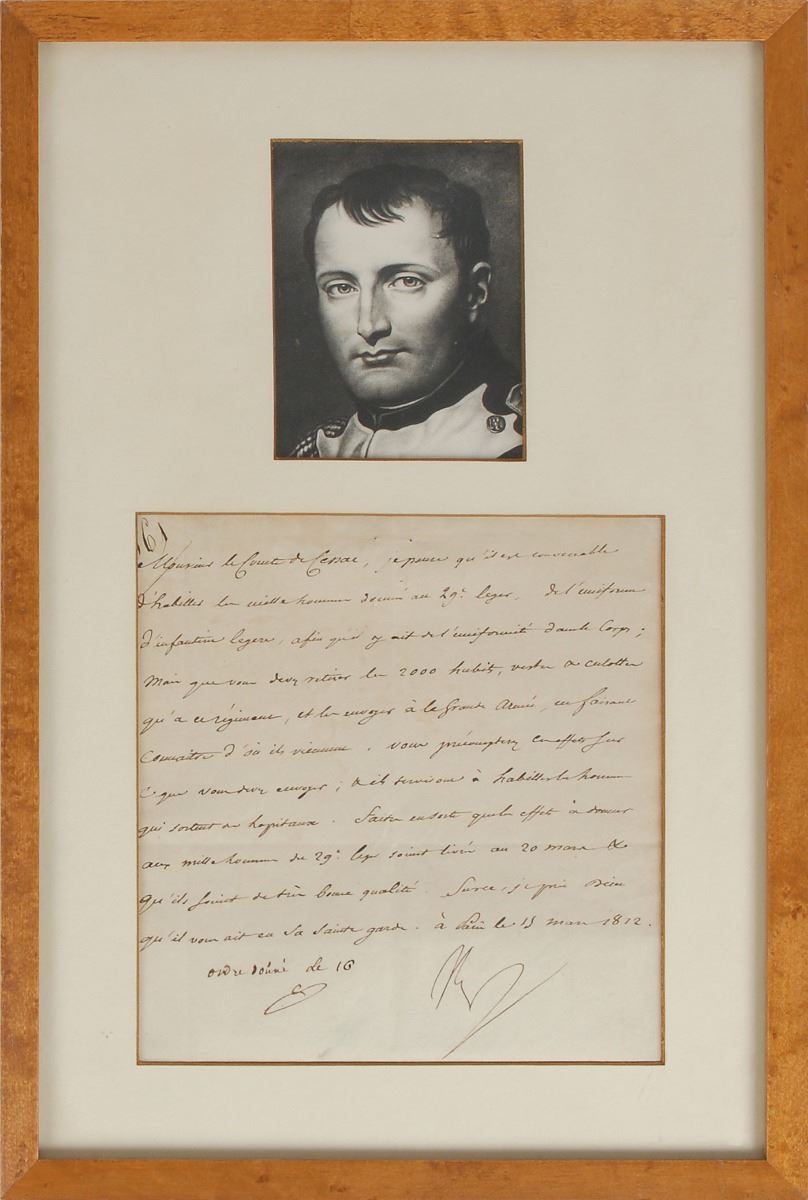 Monsieur le Comte de Cessac, je pense qu'il est convenable
d'habiller les mille hommes donnés au 29e. leger, de l'uniforme
d'infanterie legere, afin qu'il y ait de l'uniformité dans le Corps;
Mais que vous devez retirer les 2000 habits, vestes & culottes
qu'a ce régiment, et les envoyer à la Grande Armée, en faisant
Connaitre d'où ils viennent. vous précompterez ces effets sur
ce que vous devez envoyer; & ils serviront à habiller les hommes
qui sortent des hopitaux. Faites en sorte que les effets à donner
aux mille hommes du 29e. leger soient livrés au 20 mars &
qu'ils soient de très bonne qualité. Sur ce, je prie Dieu
qu'il vous ait en Sa Sainte garde. à Paris le 15 mars 1812.
ordre donné le 16